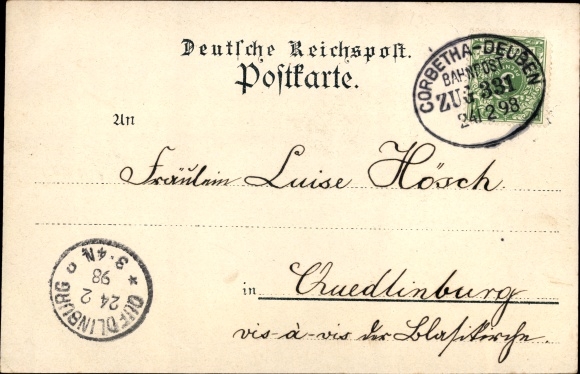 Deutsche Reichspost.
Postkarte.
CORBETHA-DEUBEN
BAHNPOST
ZUG 331
24/2 98
An
Fräulein Luise Hösch.
in Quedlinburg
vis-à-vis der Blasikirche.
QUEDLINBURG
24 2
98
3-4N